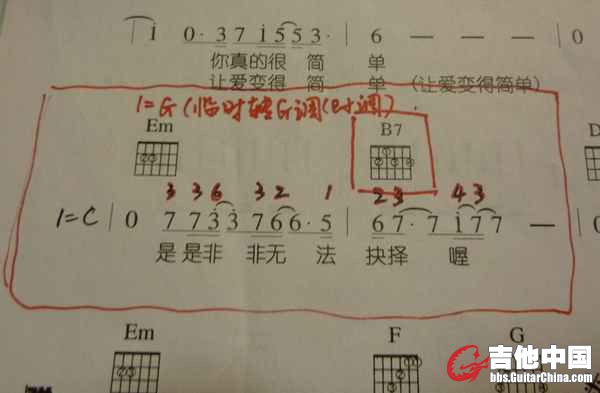 i 0·37 i553· | 6 — — — | 0
你真的很 简 单
让爱变得 简 单 (让爱变得简单)
1=G (临时转G调(时调)
Em B7 D
3 3 6 3 2 1 2 3 4 3
1=C | 0 7 7 3 3 7 6 6· 5 | 6 7· 7 i 7 7 — | 0
是 是非 非无 法 抉择 喔
Em F G
吉他中国
bbs.GuitarChina.com